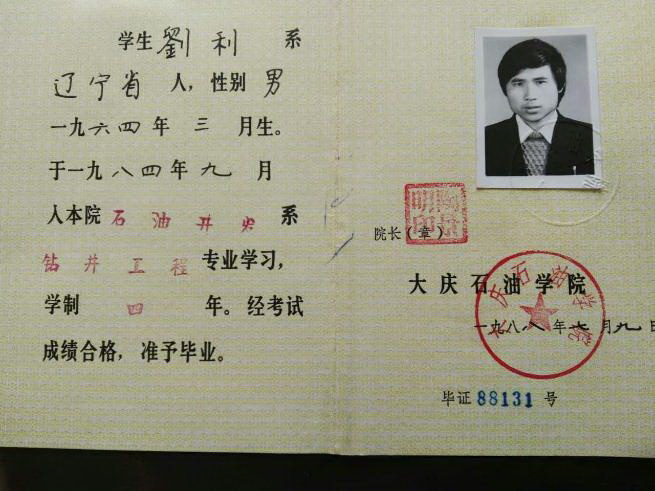 学生劉利 系
辽宁省 人，性别 男
一九六四年 三 月生。
于一九八四年九 月
入本院 石油开发 系
钻井工程 专业学习，
学制 四 年。经考试
成绩合格，准予毕业。
院长（章）
大庆石油学院
一九八八年七月九日
毕证 88131 号